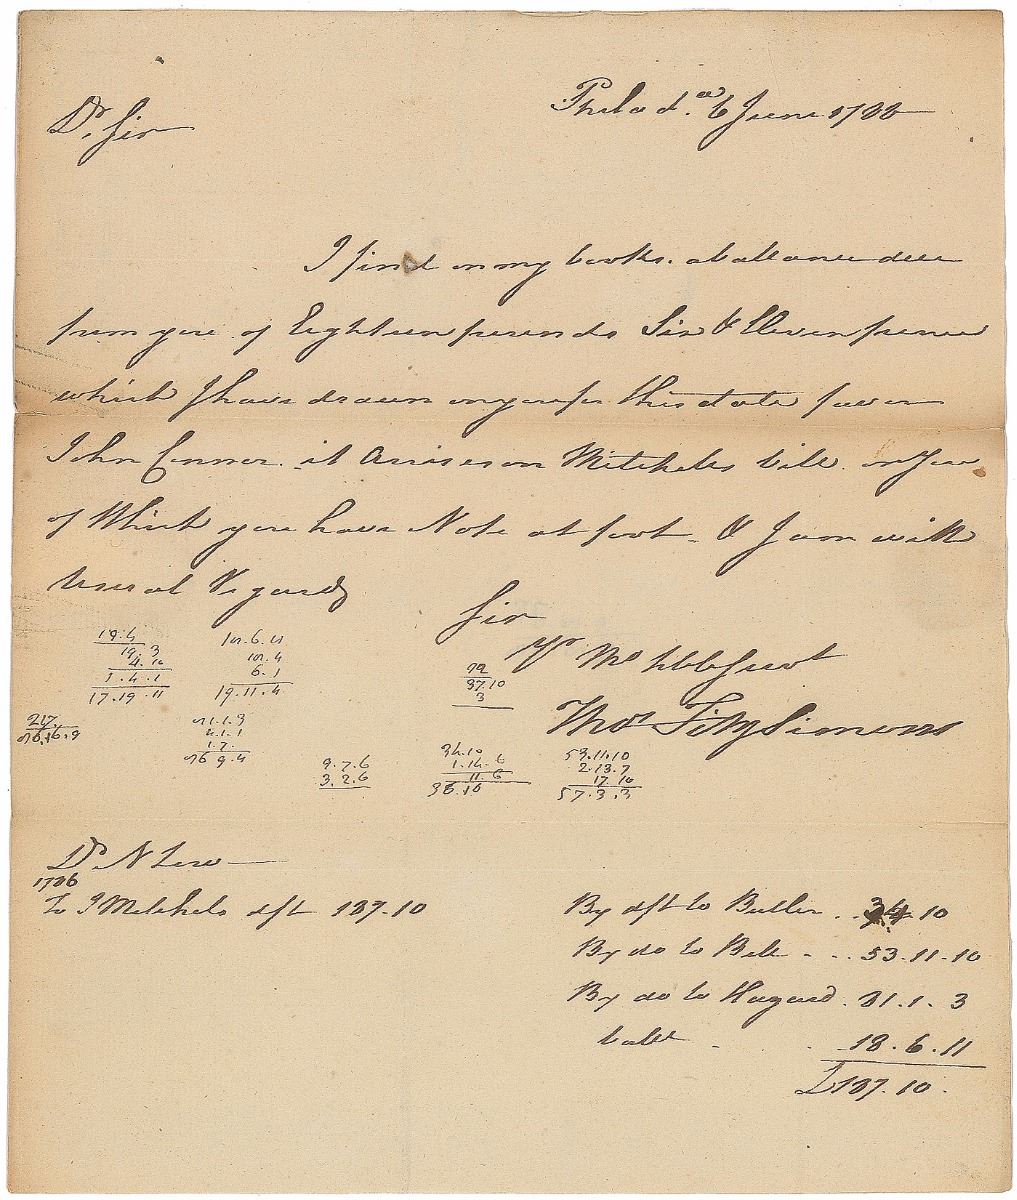 Philad.ᵃ 6 June 1788
Dʳ. Sir
I find on my books a ballance due
from you of Eighteen pounds Six & Eleven pence
which I have drawn on you for this date favor
John Connor. it Arises on Mitchels bill on you
of Which you have Note at foot. & I am with
Usual Regards
Sir
Yʳ Mo hble Servt
Thoˢ FitzSimons
19.3
1.4.1
17.19.11
6.1
19.11.4
37.10
3
217
1.7.
9.7.6
3.2.6
34.10
1.14.6
11.6
53.11.10
2.13.7
17.10
57.3.3
Dʳ. N Low
1786
To J Mitchels dft 137.10
By dft to Butler . . 34 10
By do to Bell - . . 53.11.10
By do to Hazard . 31.1.3
ballᵉ . . . 18.6.11
£137.10.